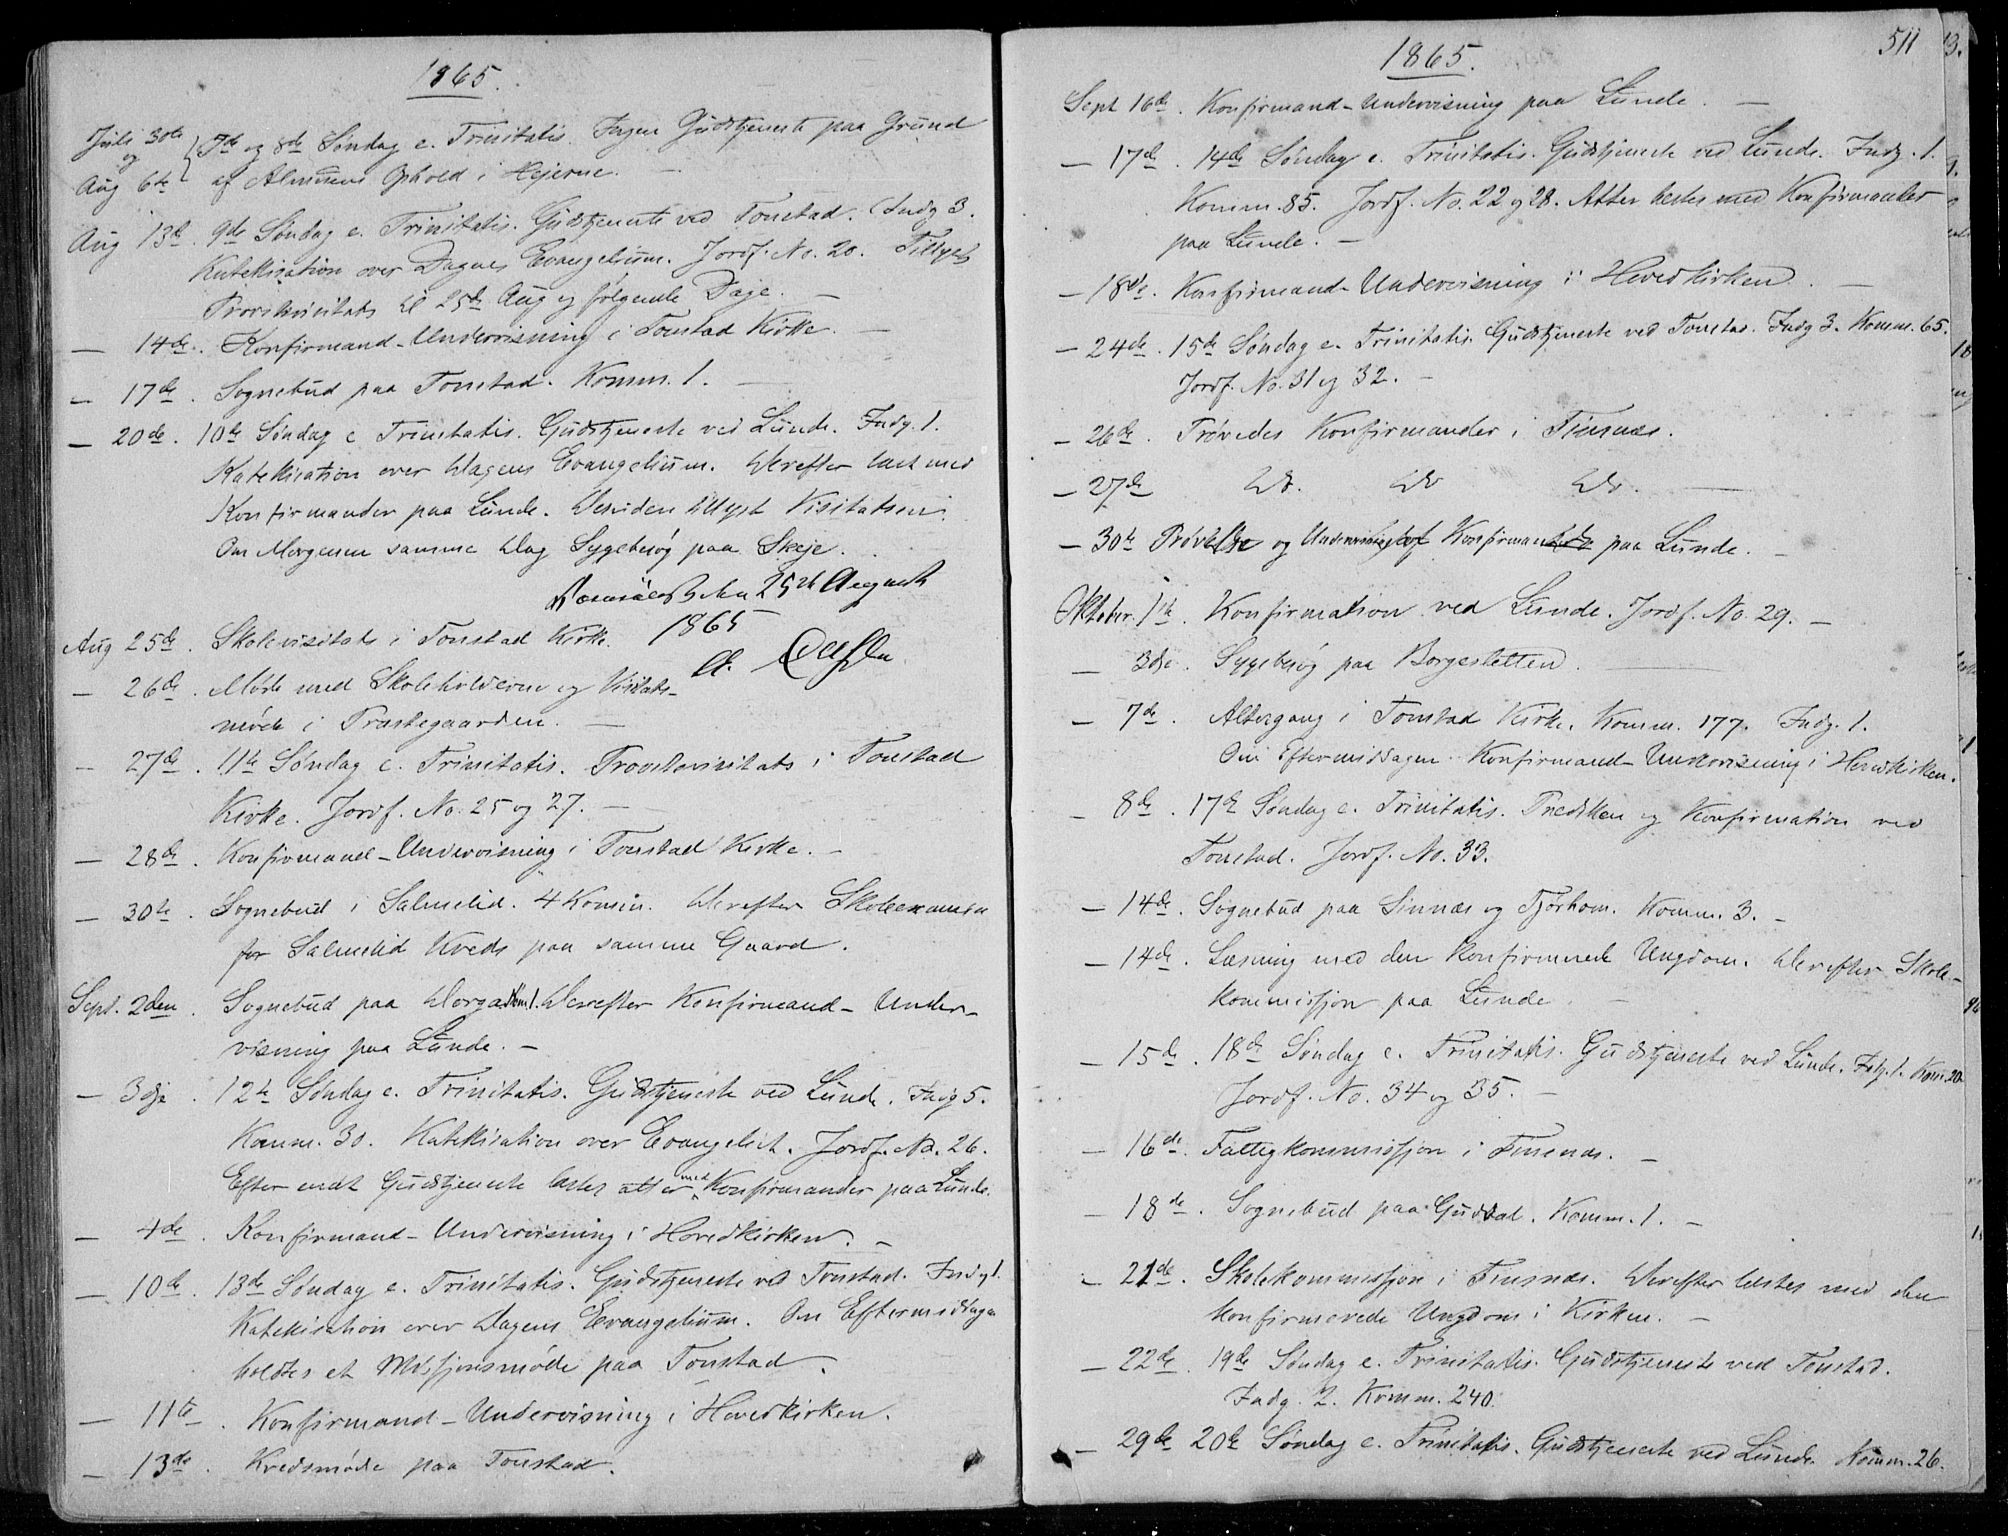 1865.
Juli 30te og Aug 6te } 7de og 8de Søndag e. Trinitatis. Ingen Gudstjeneste paa Grund
af Almuens Ophold i Hejerne. —
Aug 13de. 9de Søndag e. Trinitatis. Gudstjeneste ved Tonstad. Indg 3.
Katekisation over Dagens Evangelium. Jordf. No. 20. Tillyst
Provstivisitats til 25de Aug og følgende Dage. —
— 14de. Konfirmand-Undervisning i Tonstad Kirke. —
— 17de. Sognebud paa Tonstad. Komm. 1. —
— 20de. 10de Søndag e Trinitatis. Gudstjeneste ved Lunde. Indg. 1.
Katekisation over Dagens Evangelium. Derefter læst med
Konfirmander paa Lunde. Desuden tillyst Visitatsen.
Om Morgenen samme Dag Sygebesøg paa Skeje.
den 25de August
1865
Aug 25de. Skolevisitats i Tonstad Kirke.
— 26de. Møde med Skoleholderne og Visitats-
møde i Præstegaarden. —
— 27de. 11te Søndag e. Trinitatis. Provstevisitats i Tonstad
Kirke. Jordf. No. 25 og 27. —
— 28de. Konfirmand-Undervisning i Tonstad Kirke. —
— 30te. Sognebud i Salmelid. 4 Komm. Derefter Skoleexamen
for Salmelid Kreds paa samme Gaard.
Sept. 2den. Sognebud paa Dorga Kom 1. Derefter Konfirmand-Under-
visning paa Lunde. —
— 3dje. 12te Søndag e. Trinitatis. Gudstjeneste ved Lunde. Indg 5.
Komm. 30. Katekisation over Evangeliet. Jordf. No. 26.
Efter endt Gudstjeneste læstes atter med Konfirmander paa Lunde.
— 4de. Konfirmand-Undervisning i Hovedkirken. —
— 10de. 13de Søndag e. Trinitatis. Gudstjeneste ved Tonstad. Indg 1.
Katekisation over Dagens Evangelium. Om Eftermiddagen
holdtes et Missjonsmøde paa Tonstad.
— 11te. Konfirmand-Undervisning i Hovedkirken.
— 13de. Kredsmøde paa Tonstad.
511
1865.
Sept 16de. Konfirmand-Undervisning paa Lunde. —
— 17de. 14de Søndag e. Trinitatis. Gudstjeneste ved Lunde. Indg. 1.
Komm. 85. Jordf. No. 22 og 28. Atter læstes med Konfirmander
paa Lunde. —
— 18de. Konfirmand-Undervisning i Hovedkirken. —
— 24de. 15de Søndag e. Trinitatis. Gudstjeneste ved Tonstad. Indg 3. Komm. 65.
Jordf. No. 31 og 32. —
— 26de. Prøvedes Konfirmander i Finsnæs.
— 27de Do. Do Do. —
— 30te Prøvelse og Undervisning af Konfirmander paa Lunde. —
Oktober 1ste. Konfirmation ved Lunde. Jordf. No. 29. —
— 3dje. Sygebesøg paa Borgesletten. —
— 7de. Altergang i Tonstad Kirke. Komm. 177. Indg. 1.
Om Eftermiddagen Konfirmand-Undervisning i Hovedkirken.
— 8de. 17de Søndag e. Trinitatis. Prediken og Konfirmation ved
Tonstad. Jordf. No. 33.
— 14de. Sognebud paa Sinnæs og Tjørhom. Komm. 3. —
— 14de. Læsning med den konfirmerede Ungdom. Derefter Skole-
kommissjon paa Lunde. —
— 15de. 18de Søndag e. Trinitatis. Gudstjeneste ved Lunde. Indg. 1. Kom. 20
Jordf. No. 34 og 35. —
— 16de. Fattigkommissjon i Finsnæs. —
— 18de. Sognebud paa Guddal. Komm. 1. —
— 21de. Skolekommissjon i Finsnæs. Derefter læstes med den
konfirmerede Ungdom i Kirken. —
— 22de. 19de Søndag e. Trinitatis. Gudstjeneste ved Tonstad.
Indg. 2. Komm. 240.
— 29de 20de Søndag e. Trinitatis. Gudstjeneste ved Lunde. Komm. 26.